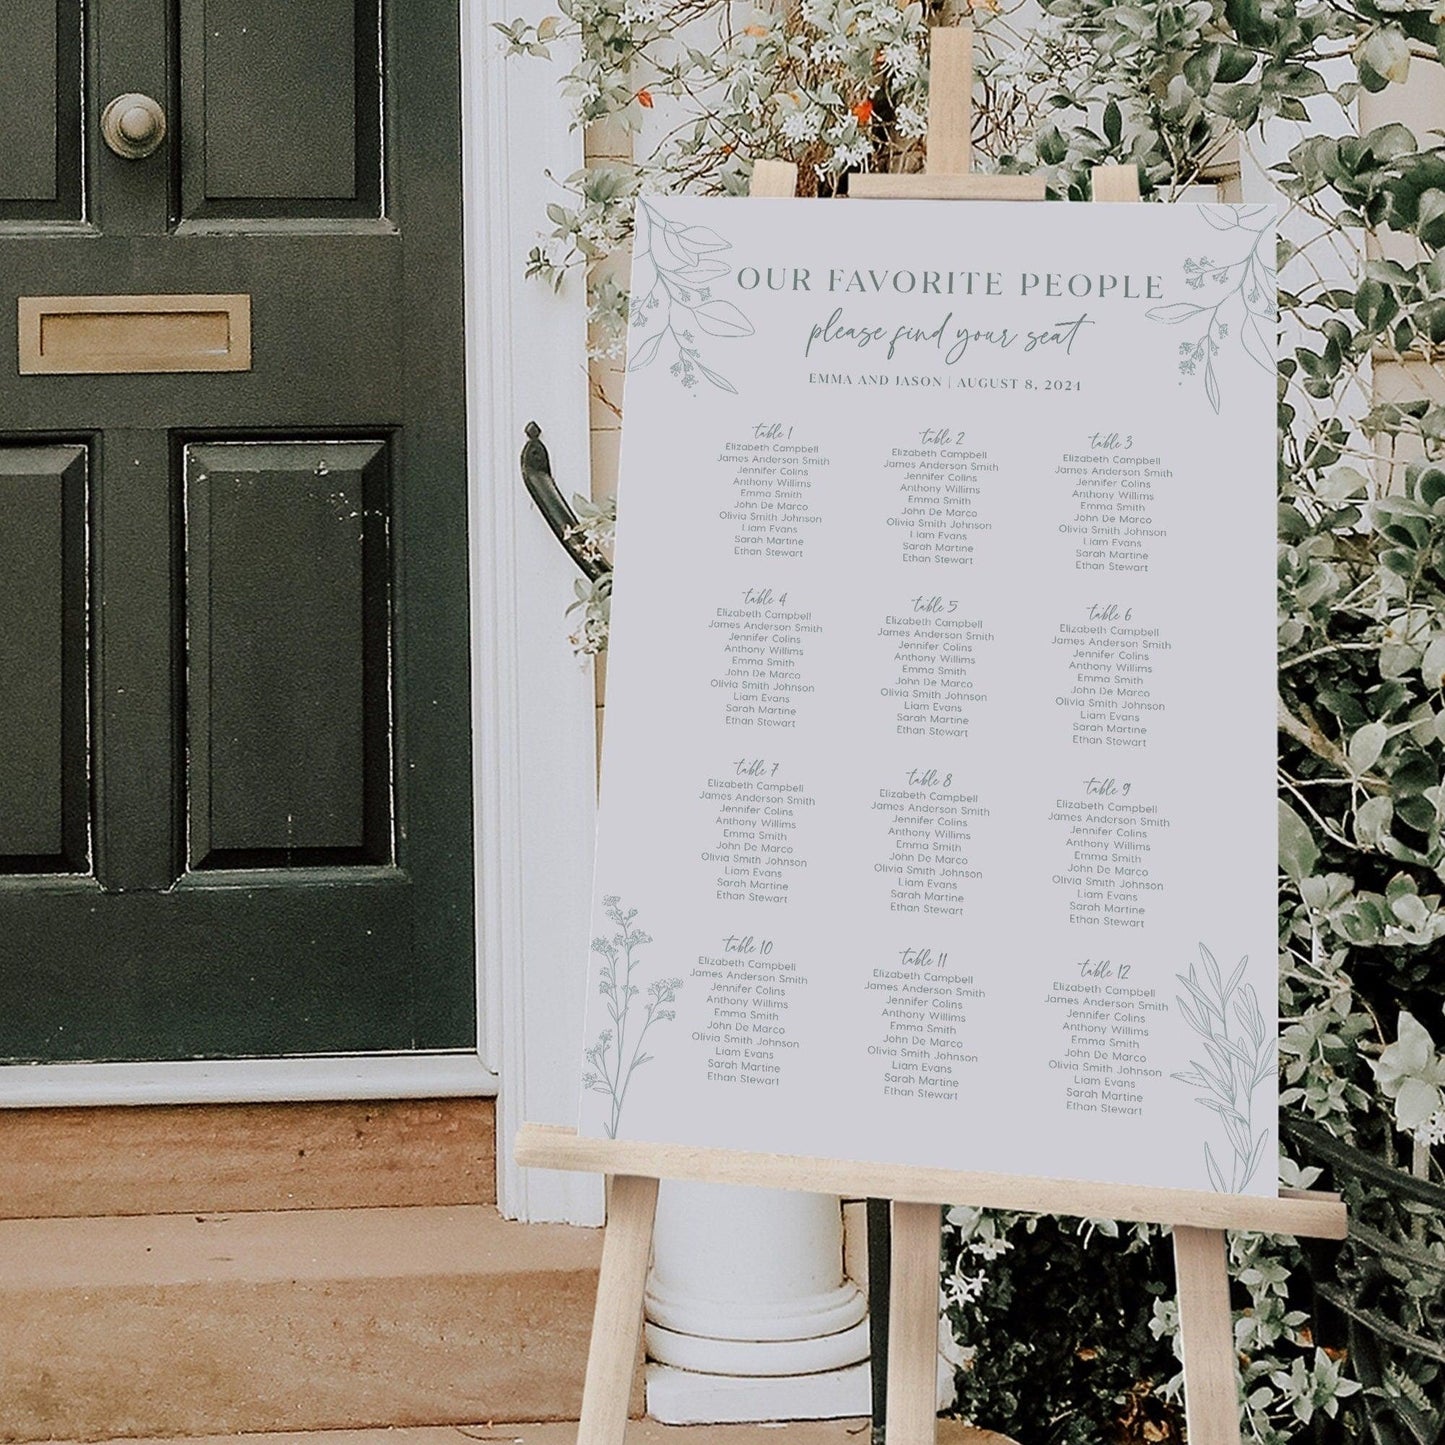 OUR FAVORITE PEOPLE
please find your seat
EMMA AND JASON | AUGUST 8, 2024
table 1
Elizabeth Campbell
James Anderson Smith
Jennifer Colins
Anthony Willims
Emma Smith
John De Marco
Olivia Smith Johnson
Liam Evans
Sarah Martine
Ethan Stewart
table 2
Elizabeth Campbell
James Anderson Smith
Jennifer Colins
Anthony Willims
Emma Smith
John De Marco
Olivia Smith Johnson
Liam Evans
Sarah Martine
Ethan Stewart
table 3
Elizabeth Campbell
James Anderson Smith
Jennifer Colins
Anthony Willims
Emma Smith
John De Marco
Olivia Smith Johnson
Liam Evans
Sarah Martine
Ethan Stewart
table 4
Elizabeth Campbell
James Anderson Smith
Jennifer Colins
Anthony Willims
Emma Smith
John De Marco
Olivia Smith Johnson
Liam Evans
Sarah Martine
Ethan Stewart
table 5
Elizabeth Campbell
James Anderson Smith
Jennifer Colins
Anthony Willims
Emma Smith
John De Marco
Olivia Smith Johnson
Liam Evans
Sarah Martine
Ethan Stewart
table 6
Elizabeth Campbell
James Anderson Smith
Jennifer Colins
Anthony Willims
Emma Smith
John De Marco
Olivia Smith Johnson
Liam Evans
Sarah Martine
Ethan Stewart
table 7
Elizabeth Campbell
James Anderson Smith
Jennifer Colins
Anthony Willims
Emma Smith
John De Marco
Olivia Smith Johnson
Liam Evans
Sarah Martine
Ethan Stewart
table 8
Elizabeth Campbell
James Anderson Smith
Jennifer Colins
Anthony Willims
Emma Smith
John De Marco
Olivia Smith Johnson
Liam Evans
Sarah Martine
Ethan Stewart
table 9
Elizabeth Campbell
James Anderson Smith
Jennifer Colins
Anthony Willims
Emma Smith
John De Marco
Olivia Smith Johnson
Liam Evans
Sarah Martine
Ethan Stewart
table 10
Elizabeth Campbell
James Anderson Smith
Jennifer Colins
Anthony Willims
Emma Smith
John De Marco
Olivia Smith Johnson
Liam Evans
Sarah Martine
Ethan Stewart
table 11
Elizabeth Campbell
James Anderson Smith
Jennifer Colins
Anthony Willims
Emma Smith
John De Marco
Olivia Smith Johnson
Liam Evans
Sarah Martine
Ethan Stewart
table 12
Elizabeth Campbell
James Anderson Smith
Jennifer Colins
Anthony Willims
Emma Smith
John De Marco
Olivia Smith Johnson
Liam Evans
Sarah Martine
Ethan Stewart